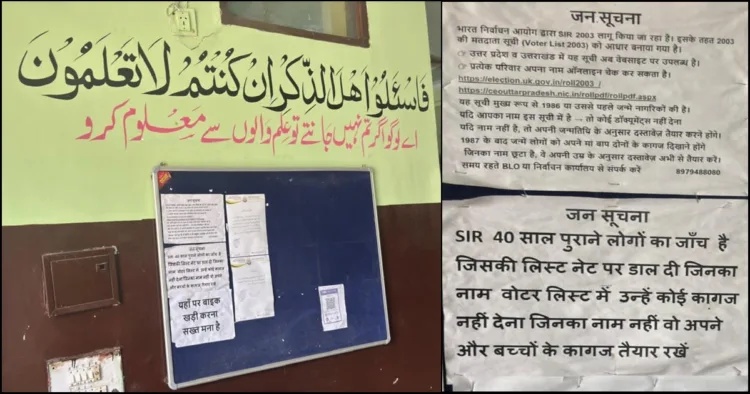 فاسئلوا اهل الذکر ان کنتم لا تعلمون
اے لوگو اگر تم نہیں جانتے تو علم والوں سے معلوم کرو
जन सूचना
जन सूचना
SIR 40 साल पुराने लोगों का जाँच है
जिसकी लिस्ट नेट पर डाल दी जिनका
नाम वोटर लिस्ट में उन्हें कोई कागज
नहीं देना जिनका नाम नहीं वो अपने
और बच्चों के कागज तैयार रखें
यहाँ पर बाइक
खड़ी करना
सख्त मना है
जन सूचना
भारत निर्वाचन आयोग द्वारा SIR 2003 लागू किया जा रहा है। इसके तहत 2003
की मतदाता सूची (Voter List 2003) को आधार बनाया गया है।
उत्तर प्रदेश व उत्तराखंड में यह सूची अब वेबसाइट पर उपलब्ध है।
प्रत्येक परिवार अपना नाम ऑनलाइन चेक कर सकता है।
https://election.uk.gov.in/roll2003_/
https://ceouttarpradesh.nic.in/rollpdf/rollpdf.aspx
यह सूची मुख्य रूप से 1986 या उससे पहले जन्मे नागरिकों की है।
यदि आपका नाम इस सूची में है → तो कोई डॉक्यूमेंट्स नहीं देना
यदि नाम नहीं है, तो अपनी जन्मतिथि के अनुसार दस्तावेज़ तैयार करने होंगे।
1987 के बाद जन्मे लोगों को अपने मां बाप दोनों के कागज दिखाने होंगे
जिनका नाम छूटा है, वे अपनी उम्र के अनुसार दस्तावेज अभी से तैयार करें।
समय रहते BLO या निर्वाचन कार्यालय से संपर्क करें 8979488080
जन सूचना
SIR 40 साल पुराने लोगों का जाँच है
जिसकी लिस्ट नेट पर डाल दी जिनका
नाम वोटर लिस्ट में उन्हें कोई कागज
नहीं देना जिनका नाम नहीं वो अपने
और बच्चों के कागज तैयार रखें